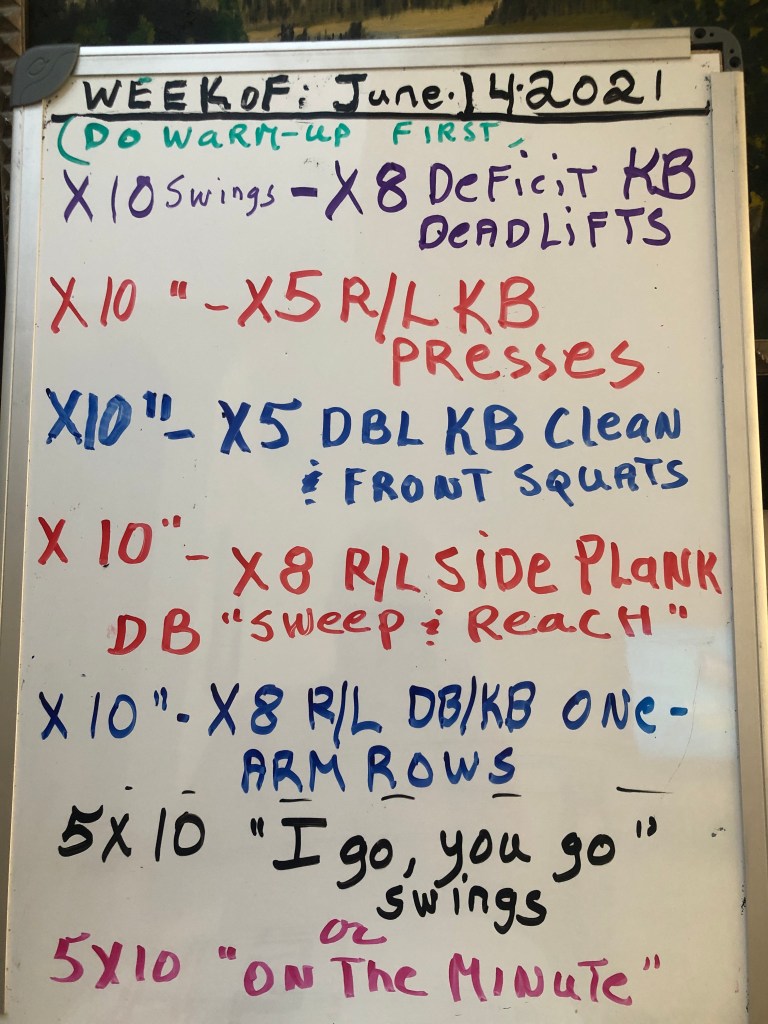 WEEK OF: June. 14.2021
(DO WARM-UP FIRST,
X10 Swings - X8 DeFiciT KB
DeADLiFTS
X10 " - X5 R/L KB
PResses
X10 " - X5 DBL KB Clean
& FRONT SQUATS
X 10 " - X8 R/L SiDe PLaNK
DB "Sweep & ReacH"
X 10 " - X8 R/L DB/KB ONe-
ARM ROWS
5X10 "I go, you go"
swings
or
5X10 "ON The MiNuTe"